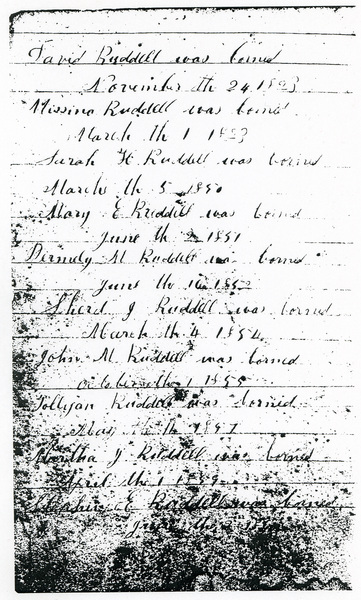 David Ruddell was borned
November th 24 1823
Missina Ruddell was borned
March th 1 1823
Sarah H Ruddell was borned
March th 5 1850
Mary E Ruddell was borned
June th 2 1851
M Ruddell was borned
June th 16 1852
Sherd J Ruddell was borned
March th 4 1854
John M Ruddell was borned
october th 1 1855
Ruddell was borned
May th 1857
Martha J Ruddell was borned
April th 1 1859
E Ruddell was borned
June th